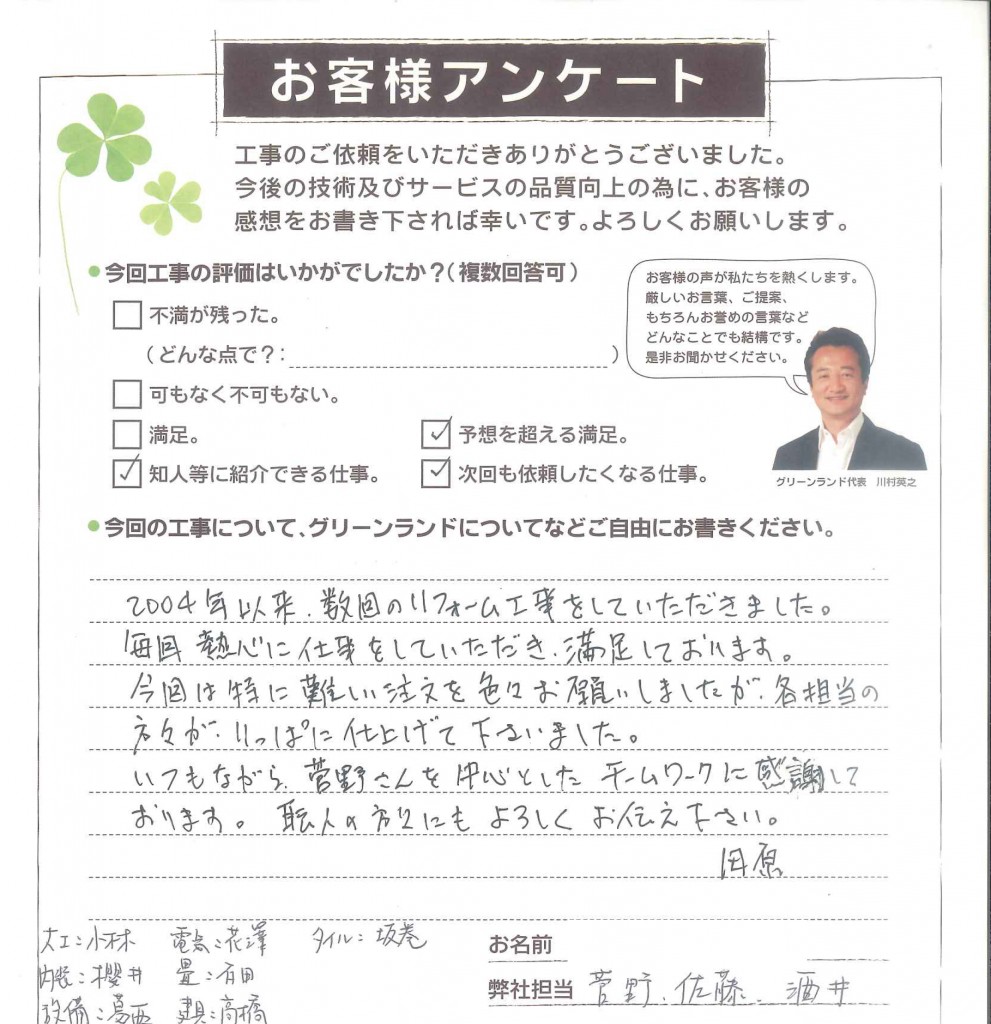 お客様アンケート
工事のご依頼をいただきありがとうございました。
今後の技術及びサービスの品質向上の為に、お客様の
感想をお書き下されば幸いです。よろしくお願いします。
●今回工事の評価はいかがでしたか？（複数回答可）
お客様の声が私たちを熱くします。
厳しいお言葉、ご提案、
もちろんお誉めの言葉など
どんなことでも結構です。
是非お聞かせください。
不満が残った。
（どんな点で？：　）
可もなく不可もない。
満足。
✓ 予想を超える満足。
✓ 知人等に紹介できる仕事。
✓ 次回も依頼したくなる仕事。
グリーンランド代表　川村英之
●今回の工事について、グリーンランドについてなどご自由にお書きください。
2004年以来、数回のリフォーム工事をしていただきました。
毎回 熱心に仕事をしていただき、満足しております。
今回は特に難しい注文を色々お願いしましたが、各担当の
方々が、りっぱに仕上げて下さいました。
いつもながら、菅野さんを中心としたチームワークに感謝して
おります。 職人の方々にもよろしくお伝え下さい。
田原
大工：小林　電気：花澤　タイル：坂巻
内装：櫻井　畳：有田
設備：葛西　建具：高橋
お名前
弊社担当 菅野、佐藤、酒井